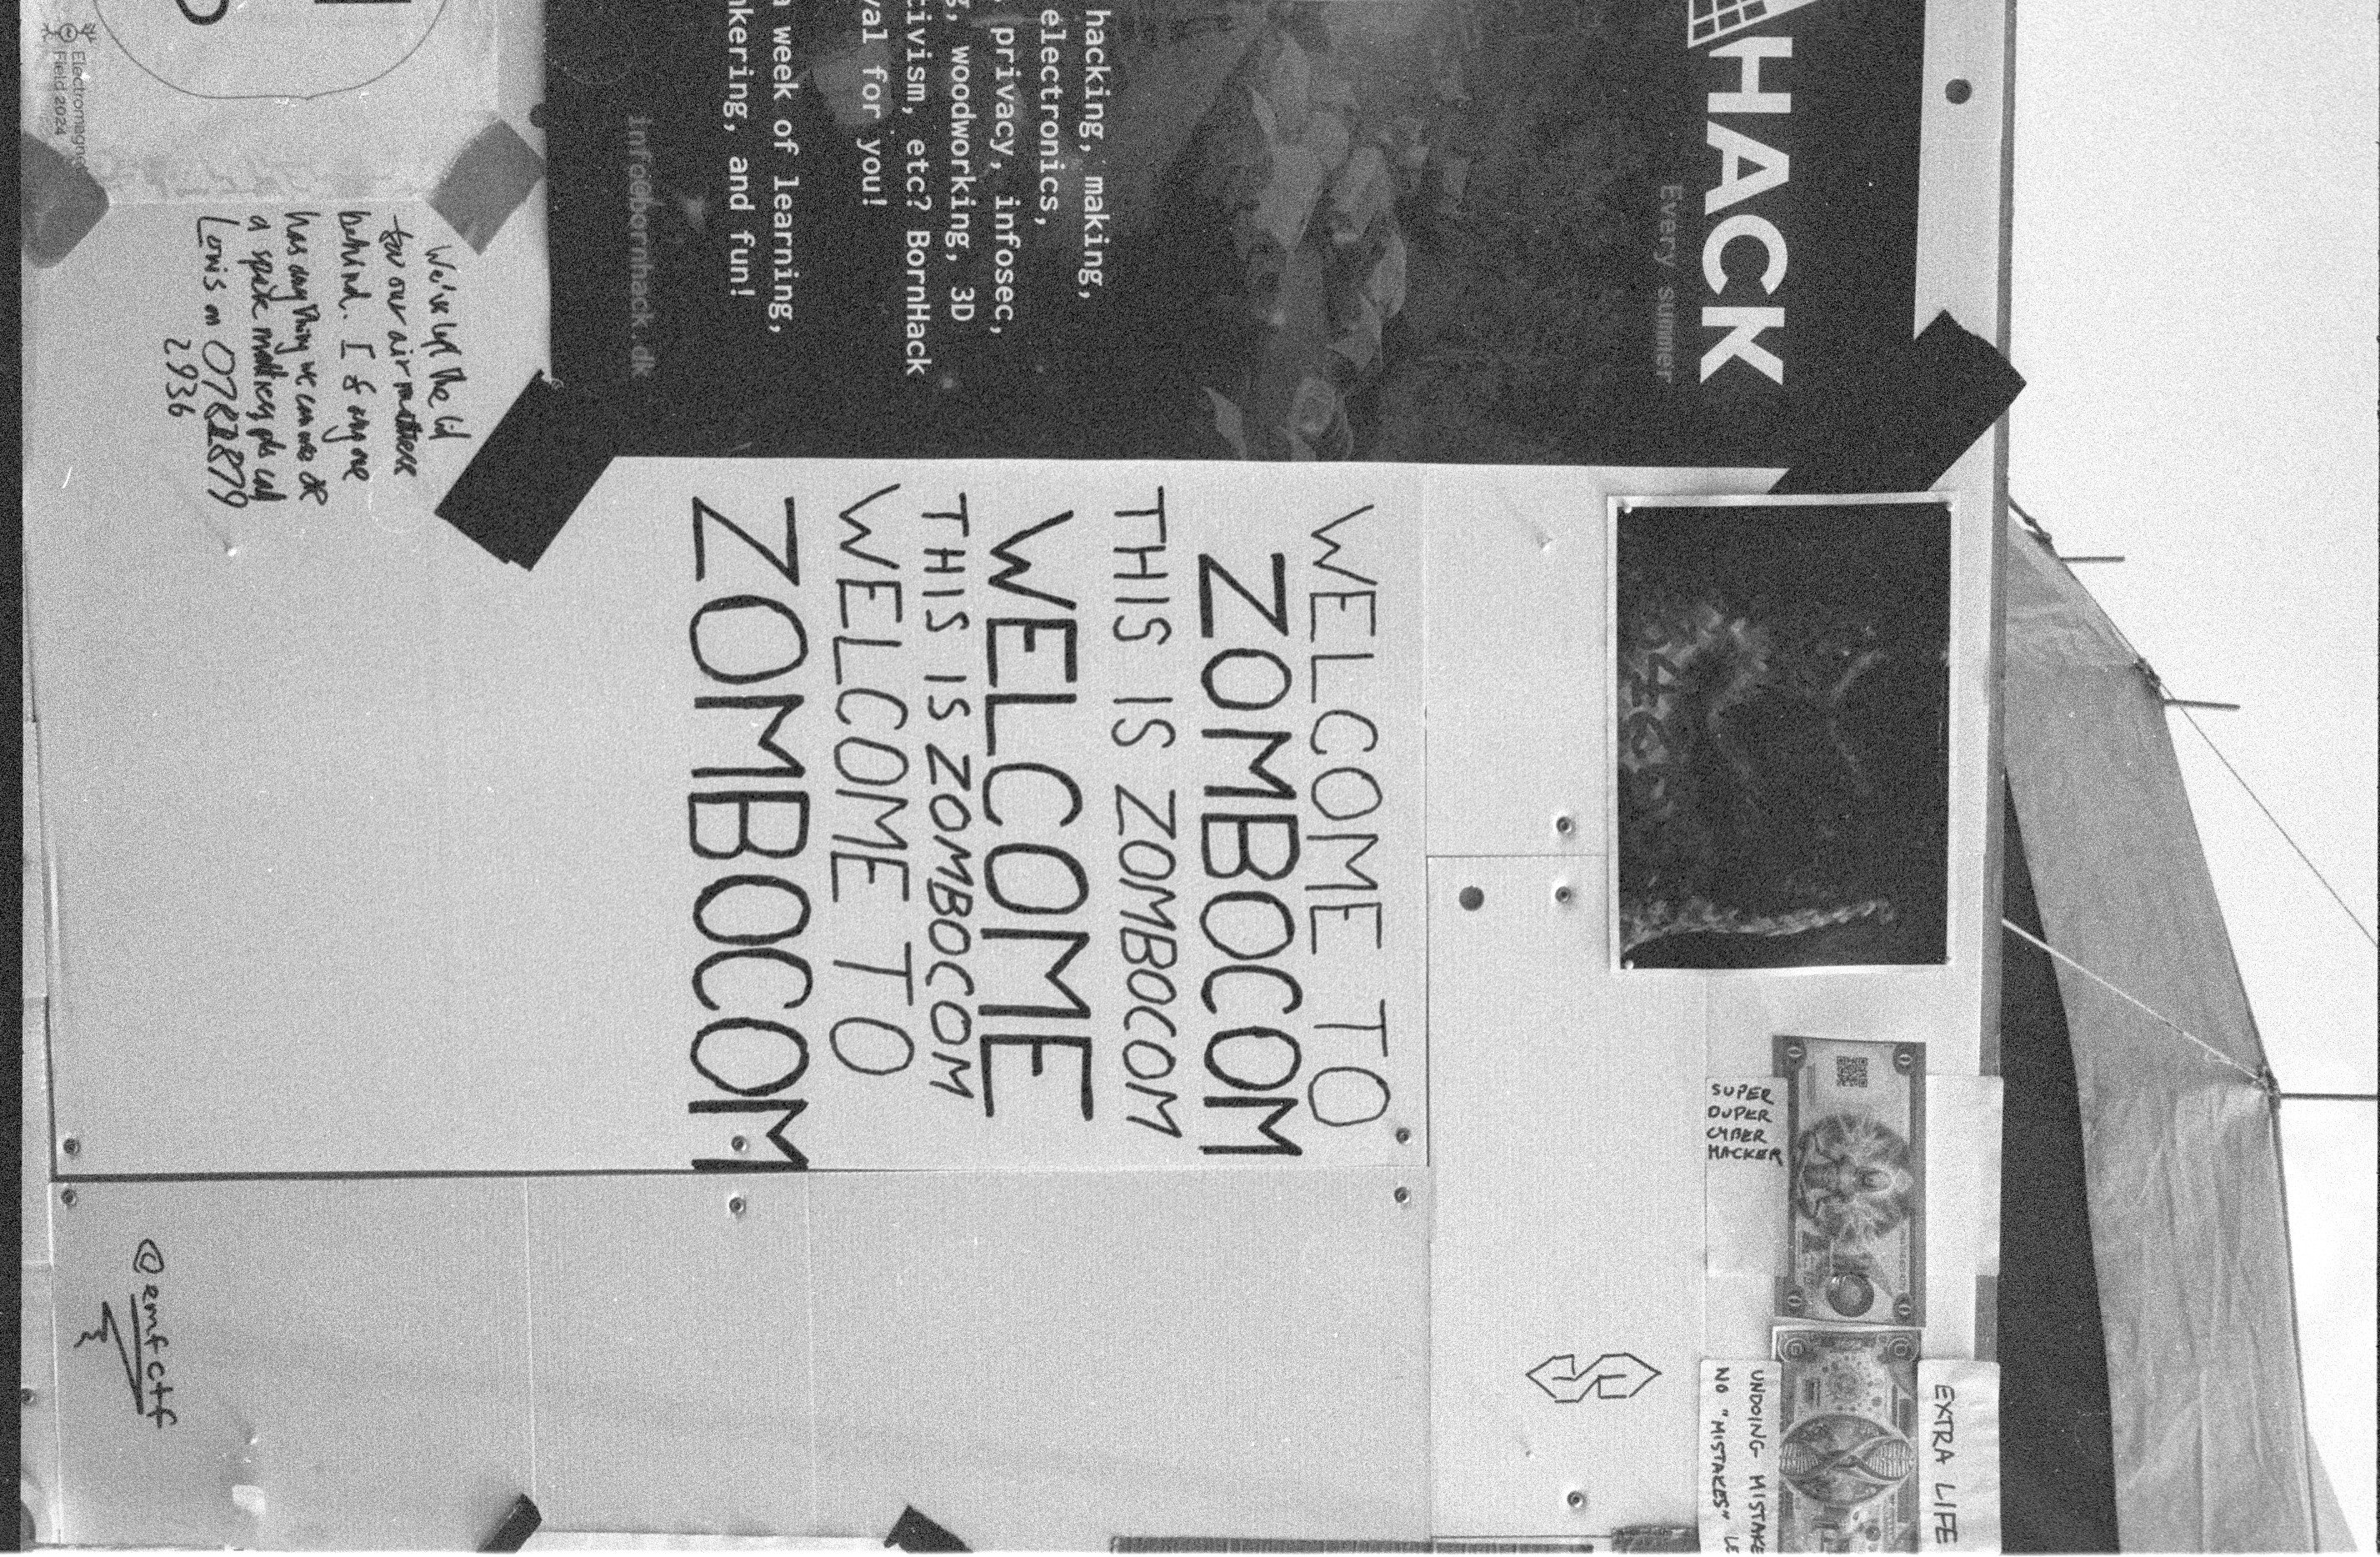 HACK
Every summer
hacking, making,
electronics,
privacy, infosec,
woodworking, 3D
etc? BornHack
for you!
week of learning,
and fun!
info@bornhack.dk
EXTRA LIFE
SUPER
DUPER
CYBER
HACKER
UNDOING MISTAKE
NO "MISTAKES" LE
WELCOME TO
ZOMBOCOM
THIS IS ZOMBOCOM
WELCOME
THIS IS ZOMBOCOM
WELCOME TO
ZOMBOCOM
We've left the lid
for our air mattress
behind. If anyone
has anything we can use OR
a spare mattress pls call
Louis on 0782879
2936
@emfctf
Electromagne
Field 2024